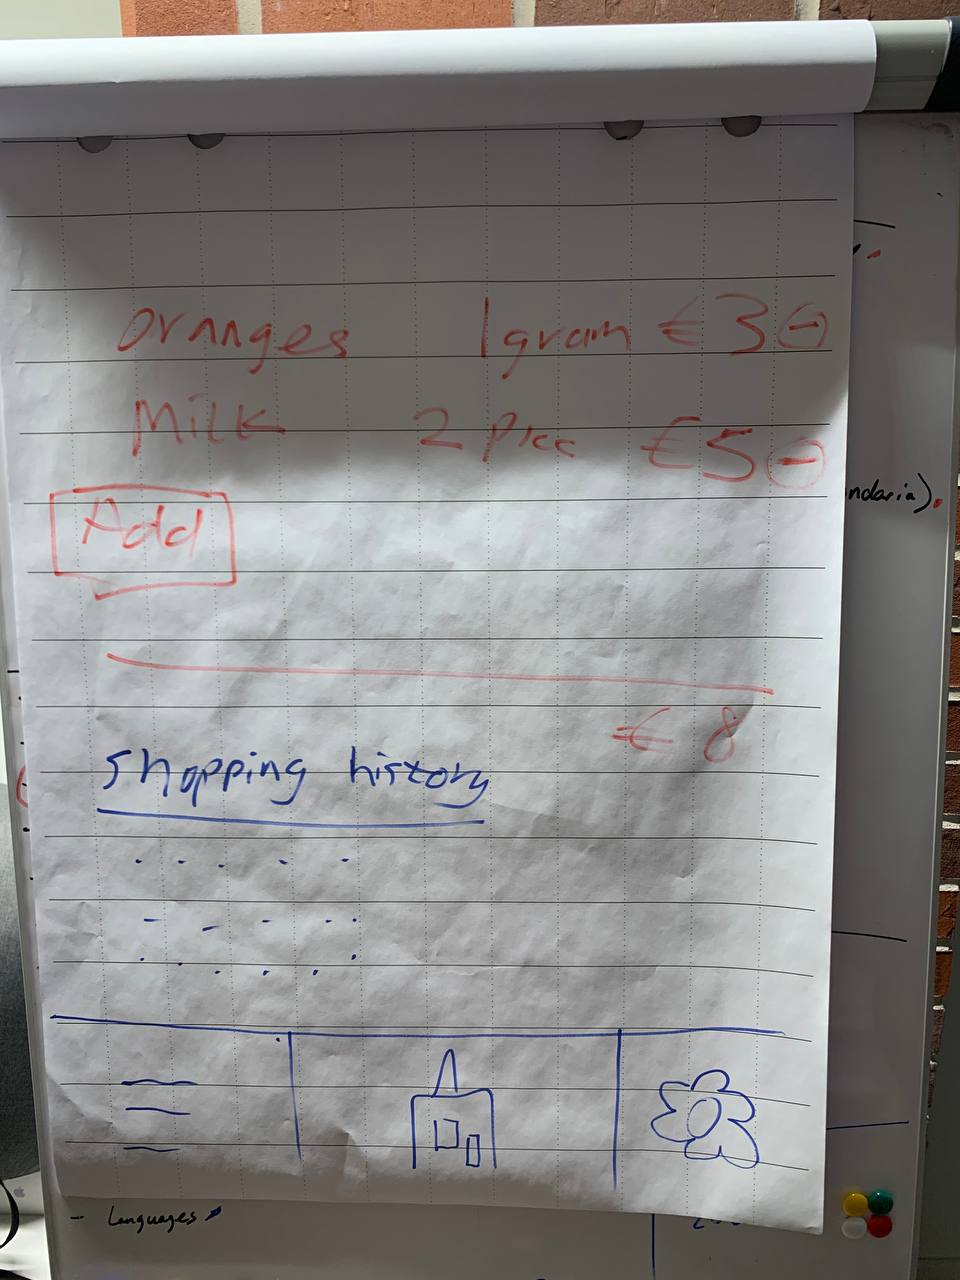 oranges 1 gram €3 ⊖
Milk 2 Pies €5 ⊖
Add
€ 8
shopping history
ndaria).
- Languages